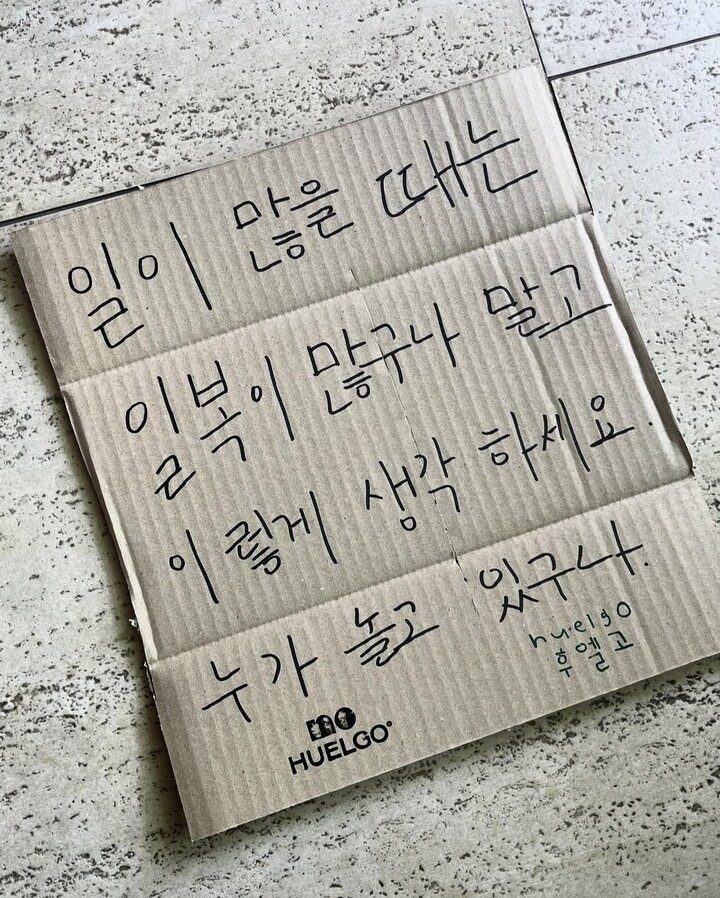 일이 많을 때는
일복이 많구나 말고
이렇게 생각 하세요.
누가 놀고 있구나.
huelgo
후엘고
HUELGO